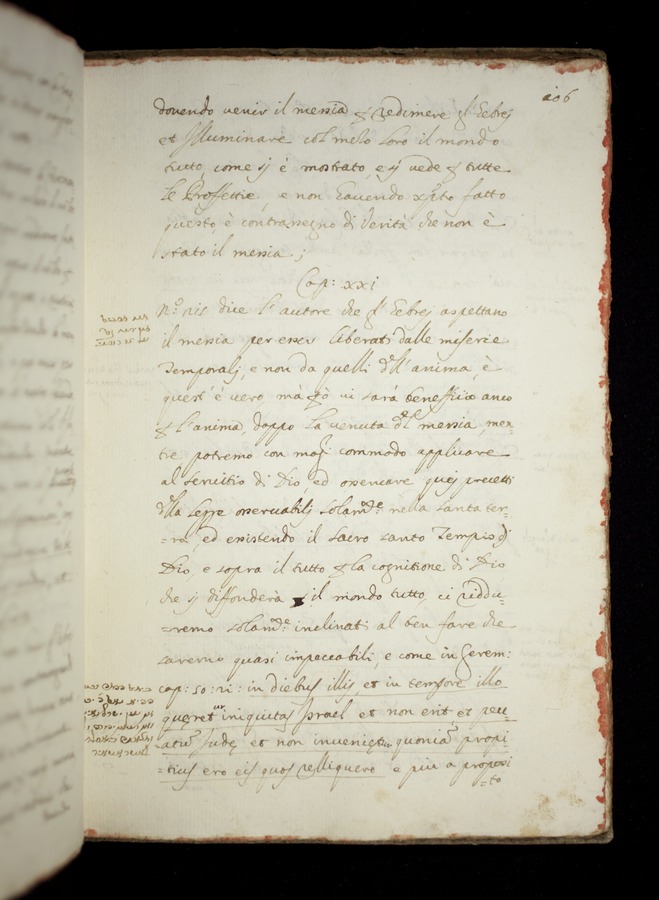 106
dovendo venir il messia p redimere gl' Eebrej
et Illuminare col melo loro il mondo
tutto, come sj è mostrato, e sj vede p tutte
le Proffettie, e non havendo xp̃to fatto
questo, è contrasegno di Verità che non è
stato il messia;
Cap: xxi
dice l' autore che gl' Eebrej aspettano
il messia per esser liberati dalle miserie
Temporalj, e non da quelli dell' anima, è
quest' è vero, mà vi sarà beneffitio anco
p l' anima, doppo la venuta del messia, men=
tre potremo con magr commodo applicare
al servitio di Dio ed osservare quej precetti
della legge osservabilj solamte nella santa ter=
=ra, ed existendo il sacro santo Tempio di
Dio, e sopra il tutto p la cognitione di Dio
che sj diffonderà p il mondo tutto, ci riddu=
=remo solamte inclinati al ben fare che
saremo quasi impeccabili, e come in Gerem:
cap: 50: in diebus illis, et in tempore illo
queretur iniquitas Israel et non erit et pec=
=catũ Jude et non invenietur quoniã propi=
=tius ero eis quos relliquero e più a proposi
=to